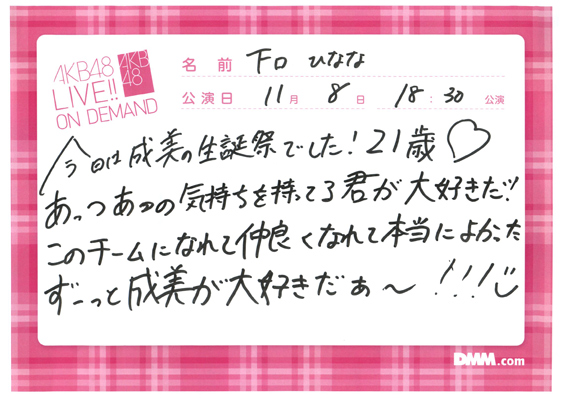 AKB48
LIVE!!
ON DEMAND
AKB
48
名前 下口 ひなな
公演日 11月 8日 18:30 公演
今日は成美の生誕祭でした!21歳♡
あっつあつの気持ちを持ってる君が大好きだ!!
このチームになれて仲良くなれて本当によかった
ずーっと成美が大好きだぁ〜!!!
DMM.com